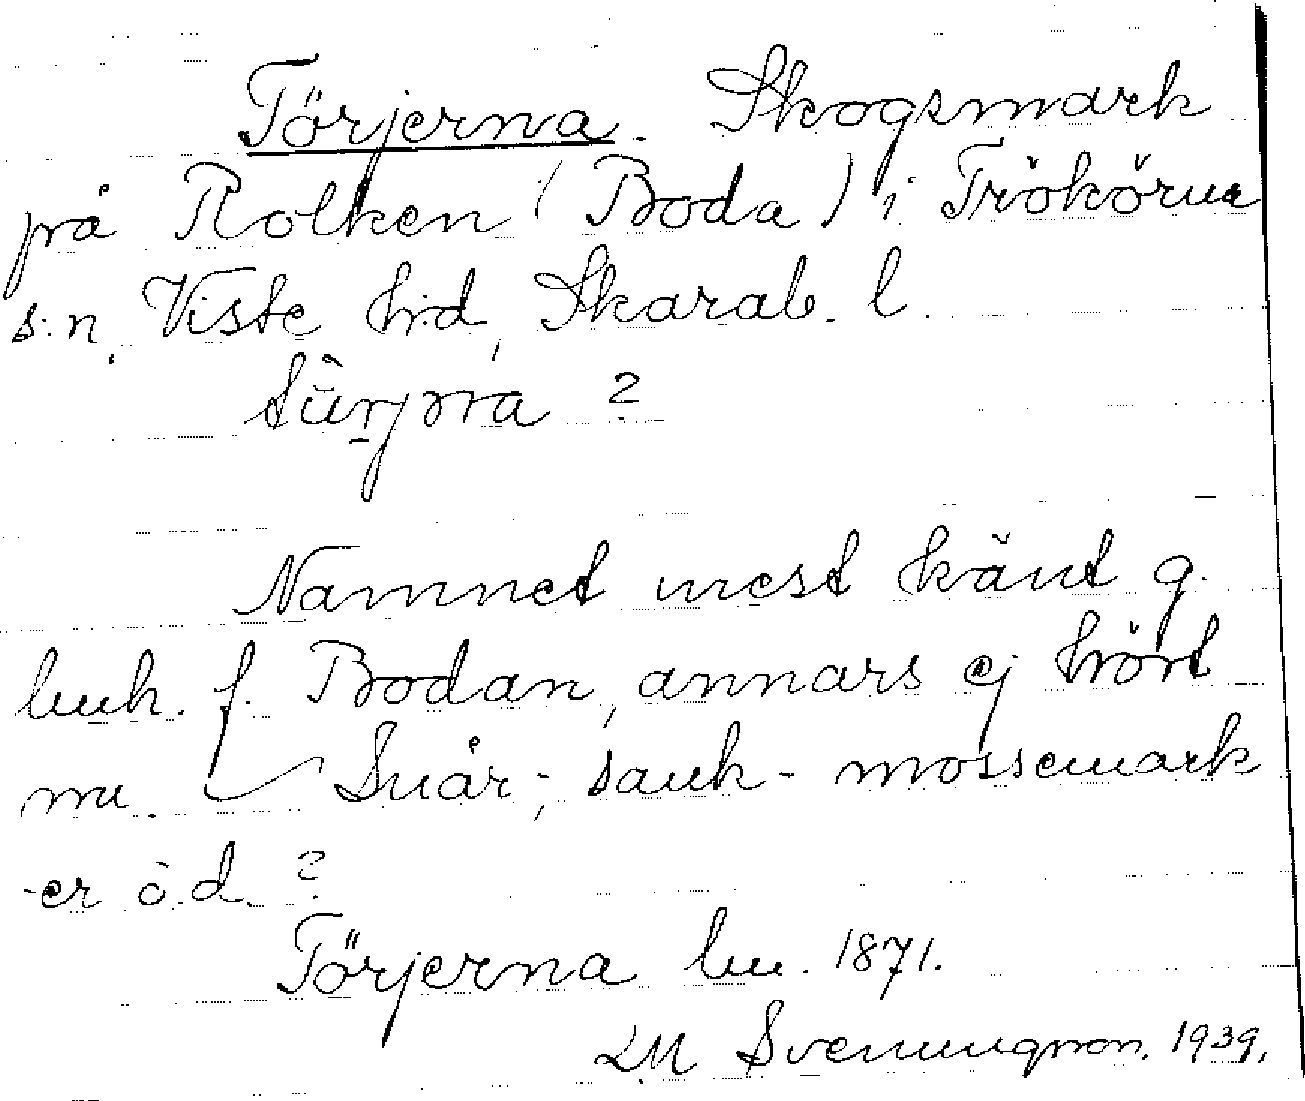 Törjerna. Skogsmark
på Rolken (Boda) i Trökörna
s:n, Viste h:d, Skarab. l.
?
Namnet mest känt g.
luh. f. Bodan, annars ej hört
nu. Snår-, sank- mossemark
-er o.d. ?
Törjerna lu. 1871.
LM Svenungsson. 1939.